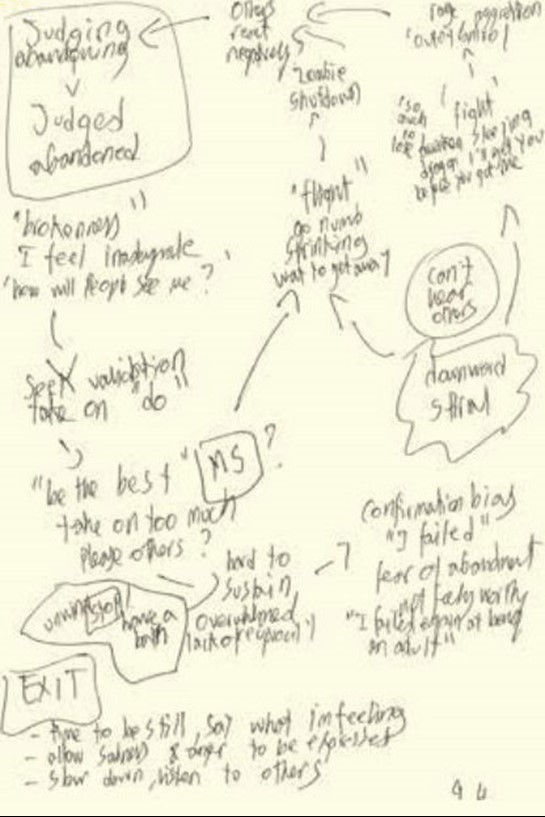 Judging
abandoning
Judged
abandoned
others
react
negatively
rage aggression
"out of control"
zombie
shutdown
"so
much to
lose
fight"
sleeping
dragon I'll get you
before you get me"
"flight"
go numb
shrinking
want to get away
can't
hear
others
downward
spiral
"brokenness"
I feel inadequate
"how will people see me?"
seek validation
take on "do"
"be the best" MS?
take on too much
please others?
hard to
sustain,
overwhelmed,
lack of reciprocity
unwind
stop!
have a
bath
confirmation bias
"I failed"
fear of abandonment
not feeling worthy
"I failed again at being
an adult"
EXIT
- time to be still, say what im feeling
- allow sadness & anger to be expressed
- slow down, listen to others